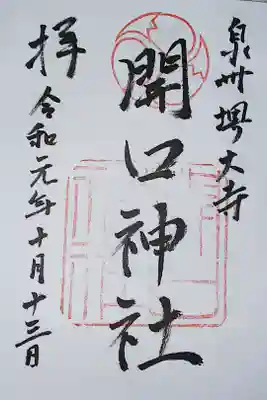 泉州堺大寺
開口神社
拝
令和元年十月十三日